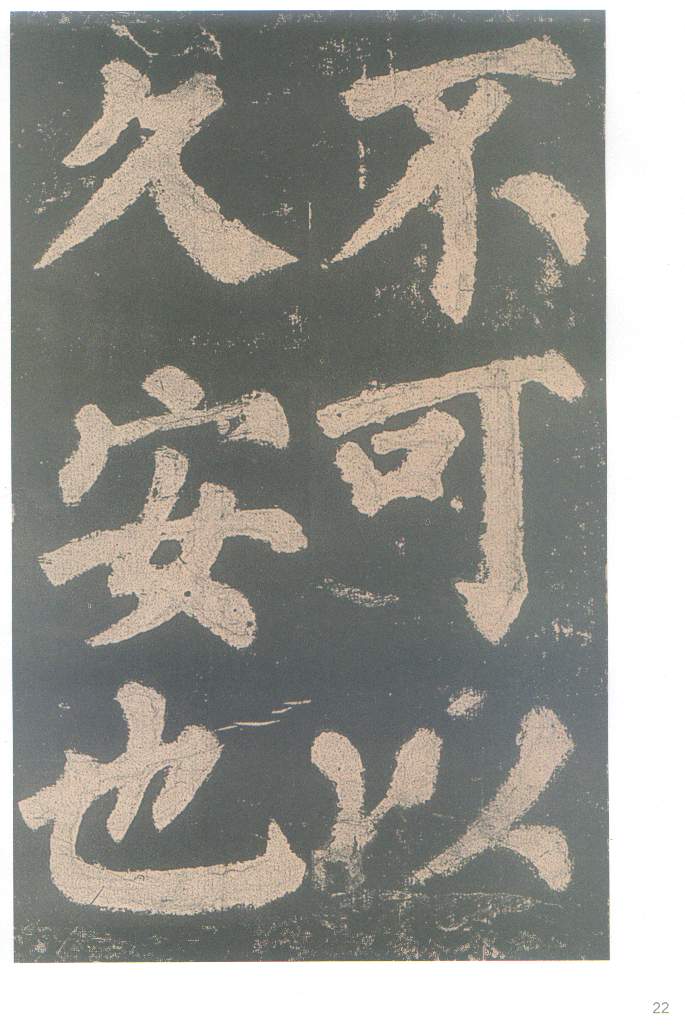 不可以
久安也
22